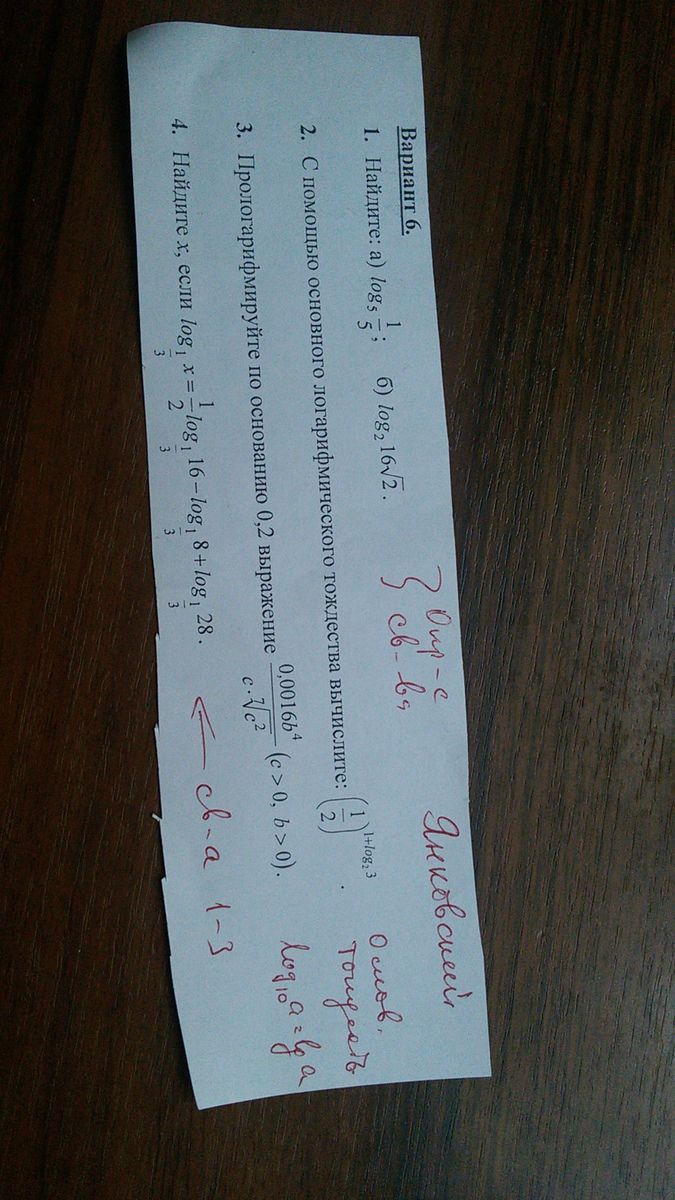 Вариант 6.
1. Найдите: а) log₅ 1/5; б) log₂ 16√2.
2. С помощью основного логарифмического тождества вычислите: (1/2)^(1+log₂3).
3. Прологарифмируйте по основанию 0,2 выражение 0,0016b⁴/(c·⁷√c²) (c > 0, b > 0).
4. Найдите x, если log_(1/3) x = 1/2 log_(1/3) 16 − log_(1/3) 8 + log_(1/3) 28.
} Опр-е
св-ва
св-а 1-3
log₁₀ a = lg a